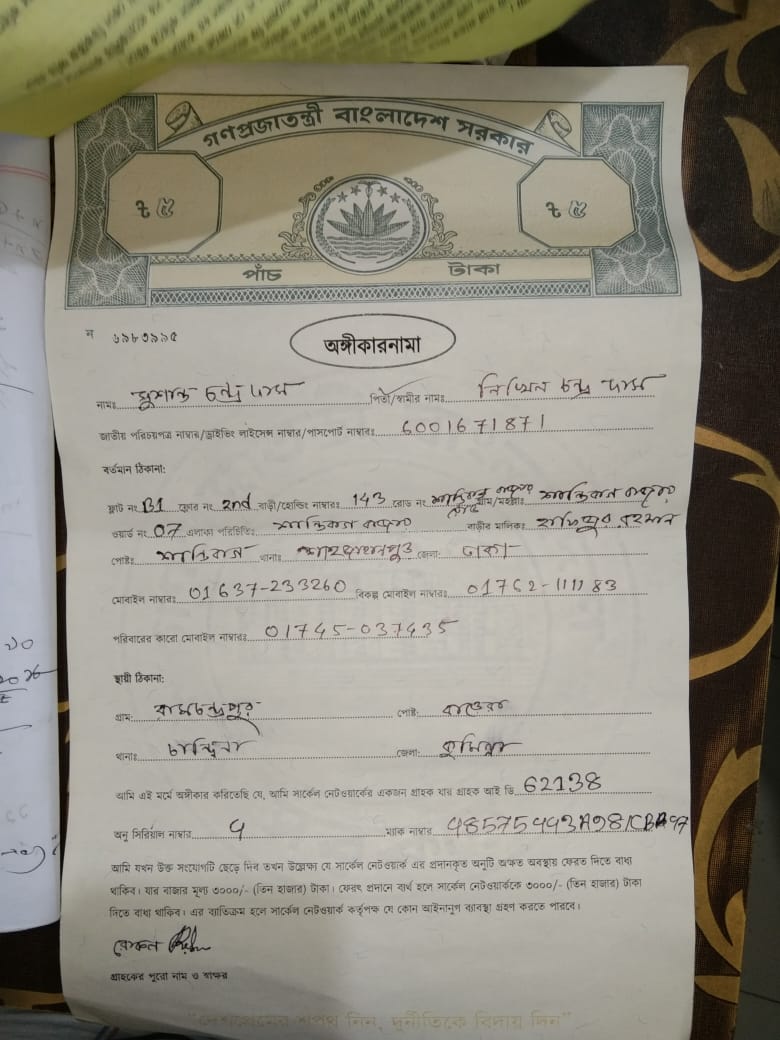 গণপ্রজাতন্ত্রী বাংলাদেশ সরকার
৳ ৫ ৳ ৫
পাঁচ টাকা
ন ৬৯৮৩৯৯৫
অঙ্গীকারনামা
নামঃ সুশান্ত চন্দ্র দাস পিতা/স্বামীর নামঃ নিখিল চন্দ্র দাস
জাতীয় পরিচয়পত্র নাম্বার/ড্রাইভিং লাইসেন্স নাম্বার/পাসপোর্ট নাম্বারঃ 6001671871
বর্তমান ঠিকানা:
ফ্লাট নং B1 ফ্লোর নং 2nd বাড়ী/হোল্ডিং নাম্বারঃ 143 রোড নং শান্তিবাগ বাজার রোড গ্রাম/মহল্লাঃ শান্তিবাগ বাজার
ওয়ার্ড নং 07 এলাকা পরিচিতিঃ শান্তিবাগ বাজার বাড়ীর মালিকঃ রহমান
পোষ্টঃ শান্তিবাগ থানাঃ শাহজাহানপুর জেলা: ঢাকা
মোবাইল নাম্বারঃ 01637-233260 বিকল্প মোবাইল নাম্বারঃ 01762-111183
পরিবারের কারো মোবাইল নাম্বারঃ 01745-037435
স্থায়ী ঠিকানা:
গ্রাম: রামচন্দ্রপুর পোষ্ট:
থানাঃ চান্দিনা জেলা: কুমিল্লা
আমি এই মর্মে অঙ্গীকার করিতেছি যে, আমি সার্কেল নেটওয়ার্কের একজন গ্রাহক যার গ্রাহক আই ডি 62138
অনু সিরিয়াল নাম্বার 4 ম্যাক নাম্বার
আমি যখন উক্ত সংযোগটি ছেড়ে দিব তখন উল্লেক্ষ্য যে সার্কেল নেটওয়ার্ক এর প্রদানকৃত অনুটি অক্ষত অবস্থায় ফেরত দিতে বাধ্য
থাকিব। যার বাজার মূল্য ৩০০০/- (তিন হাজার) টাকা। ফেরৎ প্রদানে ব্যর্থ হলে সার্কেল নেটওয়ার্ককে ৩০০০/- (তিন হাজার) টাকা
দিতে বাধ্য থাকিব। এর ব্যতিক্রম হলে সার্কেল নেটওয়ার্ক কর্তৃপক্ষ যে কোন আইনানুগ ব্যবস্থা গ্রহণ করতে পারবে।
গ্রাহকের পুরো নাম ও স্বাক্ষর
"দেশপ্রেমের শপথ নিন, দুর্নীতিকে বিদায় দিন"